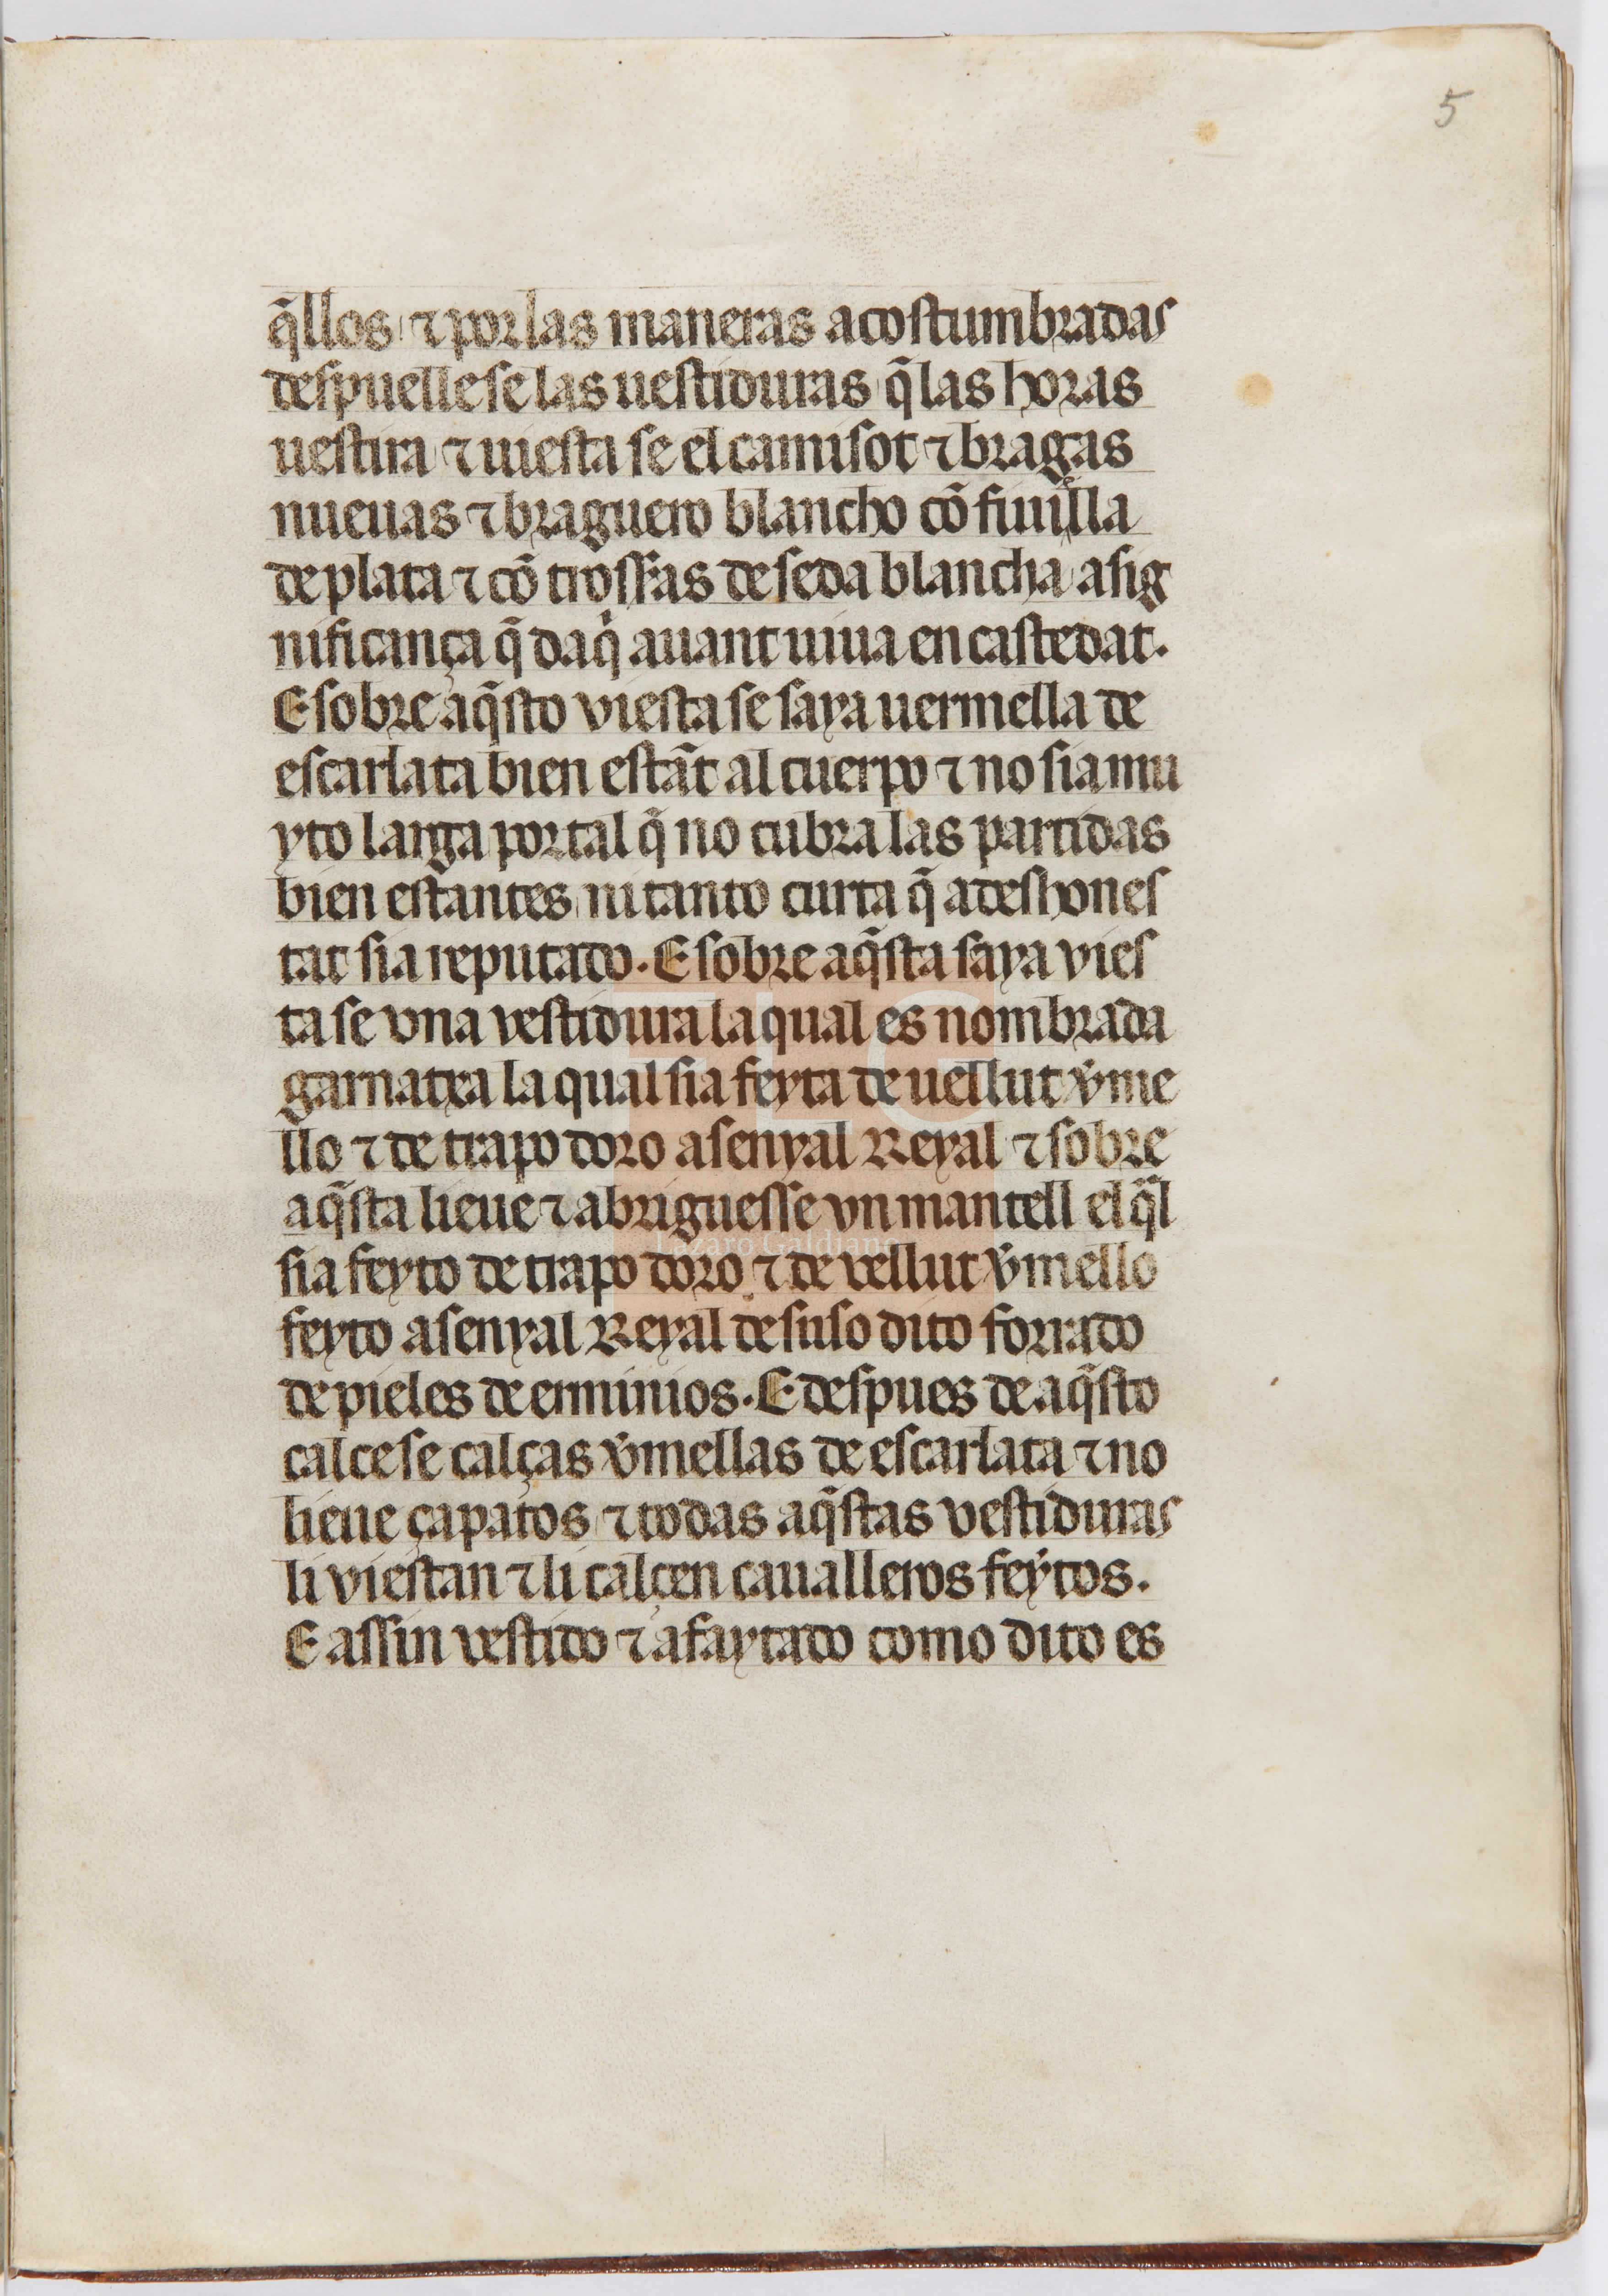 5
q̃llos ⁊ por las maneras acostumbradas
despuellese las uestiduras q̃ las horas
uestira ⁊ uiesta se el camisot ⁊ bragas
nueuas ⁊ braguero blancho cõ fiuilla
de plata ⁊ cõ trossas de seda blancha a sig
nificança q̃ daq̃ auant uiua en castedat.
E sobre aq̃sto viesta se saya uermella de
escarlata bien estãt al cuerpo ⁊ no sia mu
yto larga por tal q̃ no cubra las partidas
bien estantes ni tanto curta q̃ a deshones
tat sia reputado. E sobre aq̃sta saya vies
ta se vna vestidura la qual es nombrada
garnatxa la qual sia feyta de uellut v̉me
llo ⁊ de trapo doro a senyal Reyal ⁊ sobre
aq̃sta lieue ⁊ abriguesse vn mantell el q̃l
sia feyto de trapo doro ⁊ de vellut v̉mello
feyto a senyal Reyal de suso dito forrado
de pieles de erminios. E despues de aq̃sto
calcese calças v̉mellas de escarlata ⁊ no
lieue çapatos ⁊ todas aq̃stas vestiduras
li viestan ⁊ li calçen caualleros feytos.
E assin vestido ⁊ afaytado como dito es
Lázaro Galdiano